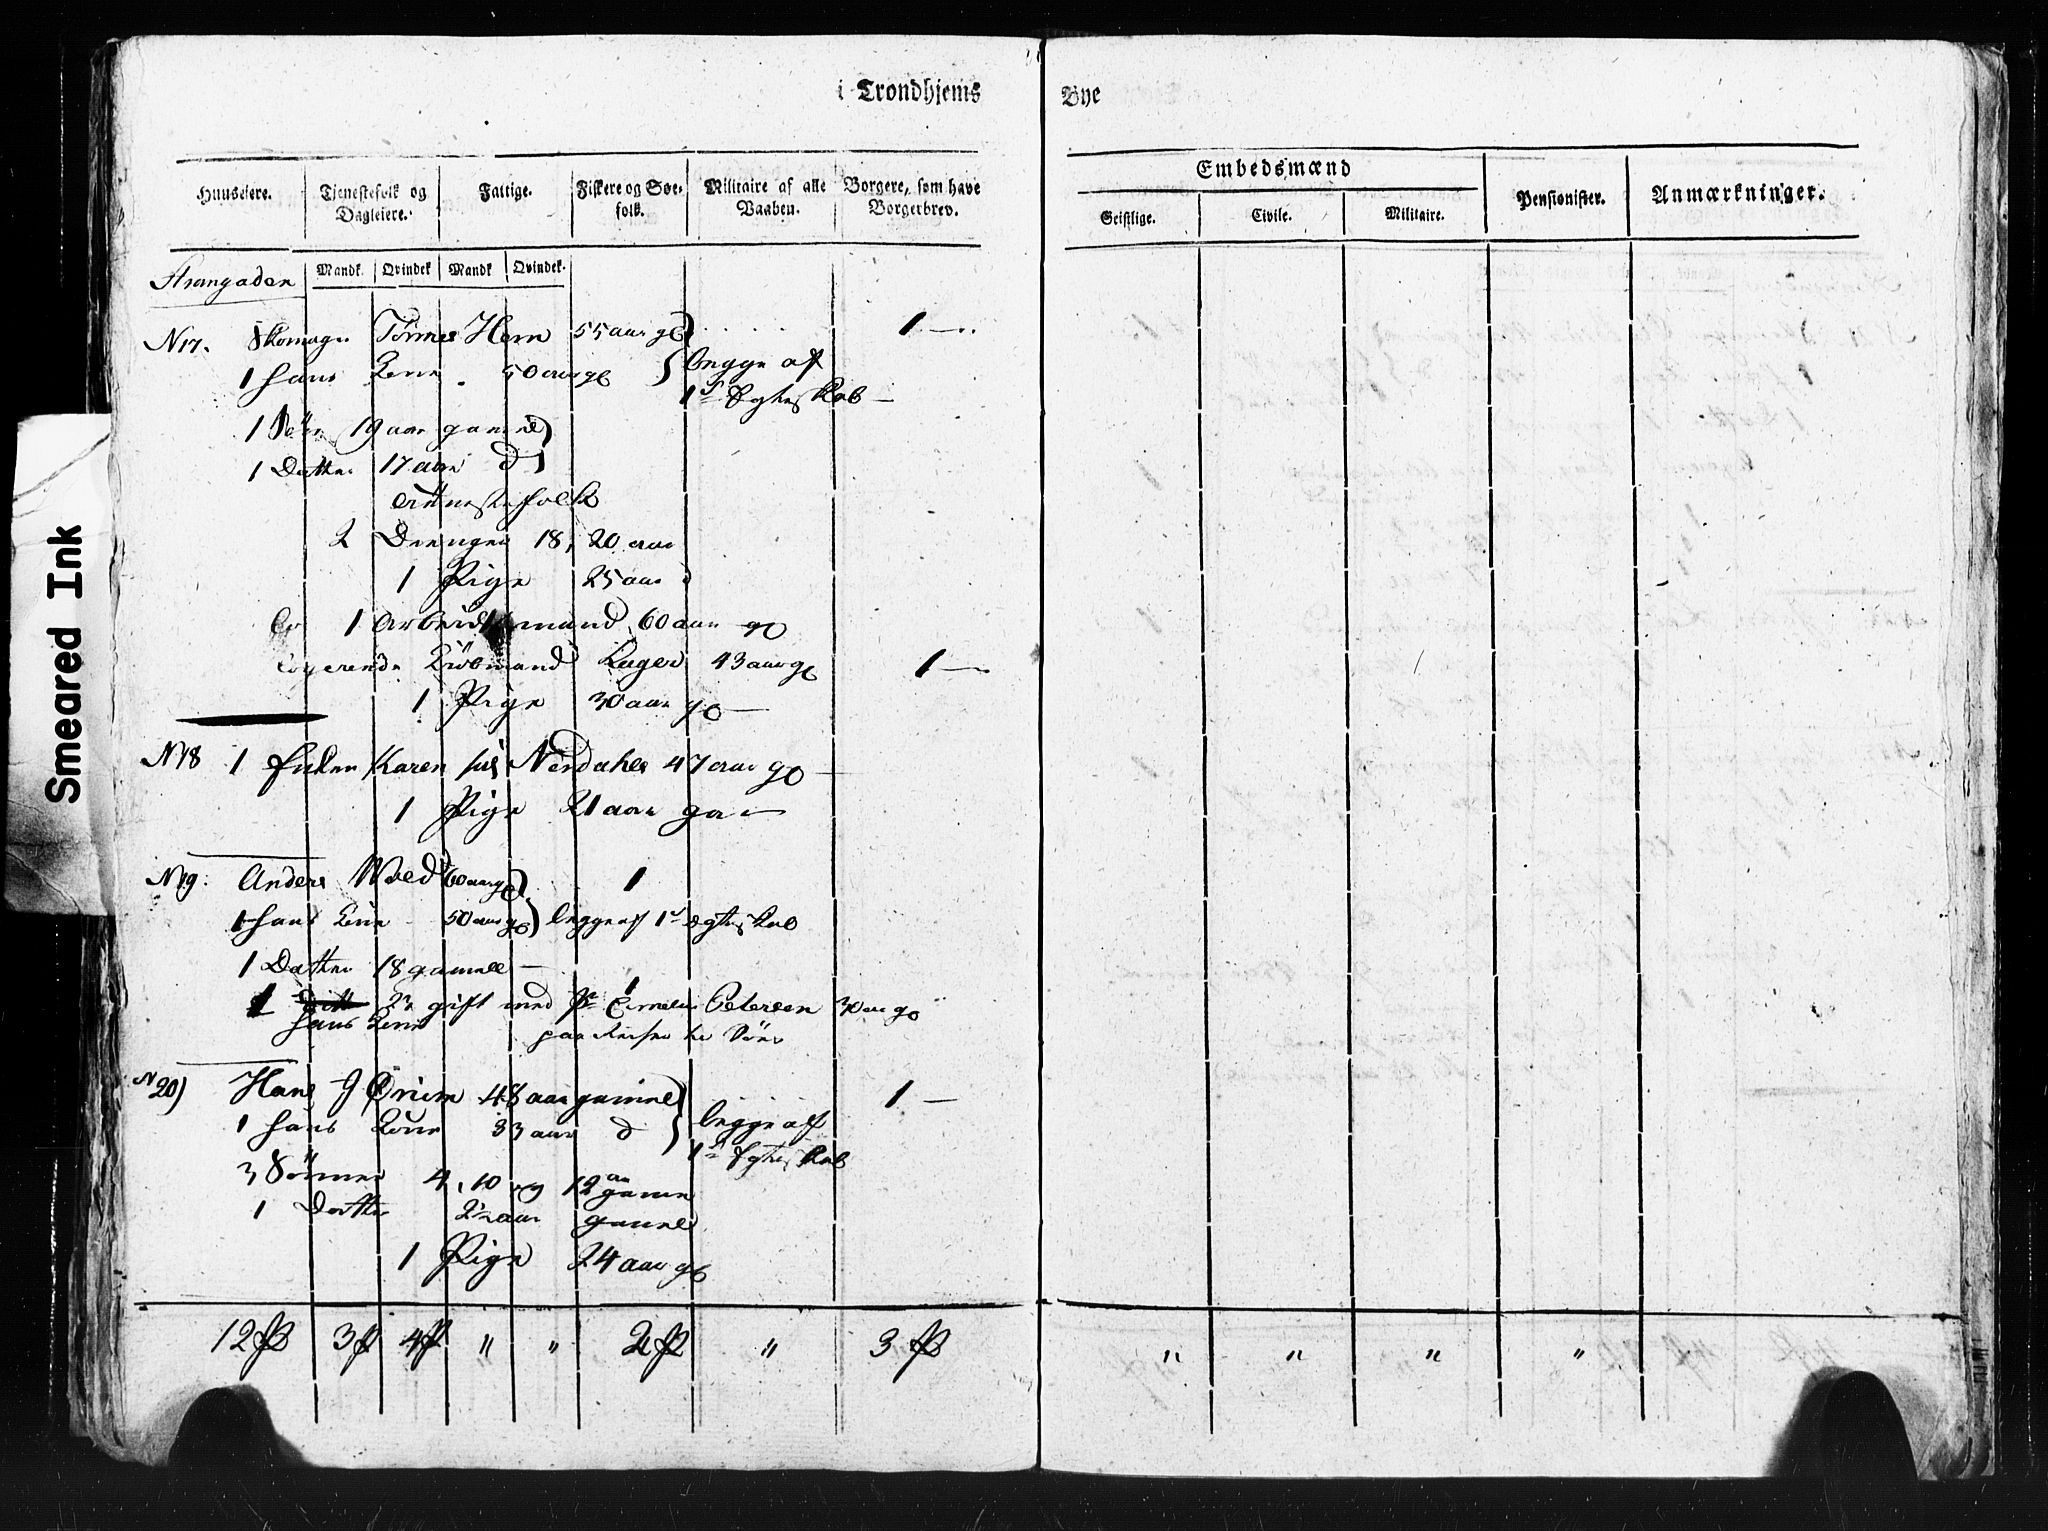 i Trondhjems Bye
Huuseiere. Tjenestefolk og Dagleiere. Fattige. Fiskere og Søefolk. Militaire af alle Vaaben. Borgere, som have Borgerbrev. Embedsmænd Pensionister. Anmærkninger.
Geistlige. Civile. Militaire.
Mandk. Qvindek Mandk Qvindek.
Strangaden
N 17. Skomager Tönnes Hem 55 aar gl 1
1 hans Kone 50 aar gl begge af
1st Egteskab
1 Sön 19 aar gammel
1 Datter 17 aar d
tienestefolk
2 Drenge 18, 20 aar
1 Pige 25 aar d
1 Arbeidsmand 60 aar gl
Logerende Kiöbmand Kuger 43 aar gl 1
1 Pige 30 aar gl
N 18 1 Enken Karen Nerdahl 47 aar gl
1 Pige 21 aar ga
N 19. Anders Wold 60 aar gl 1
1 hans Kone 50 aar gl begge af 1st Egteskab
1 Datter 18 gammel
1 gift med Cornelius Petersen 30 aar gl
hans Kone paa Reise til Söes
N 20) Hans J Öriem 48 aar gammel 1
1 hans Kone 33 aar d begge af
1st Egteskab
3 Sönner 4, 10 og 12 aar gamle
1 Datter 2 aar gammel
1 Pige 24 aar gl
12 3 4 " " 2 " 3 " " " "
Smeared Ink